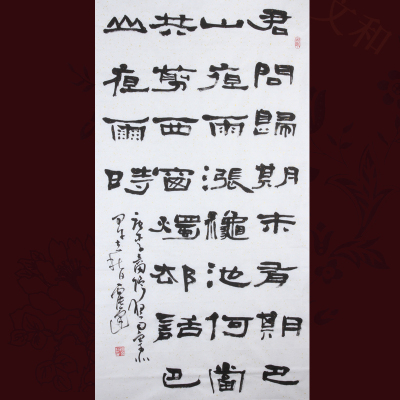 君問歸期未有期巴
山夜雨漲龝池何當
共剪西窗燭却話巴
山夜雨時
甲午立秋日
文和